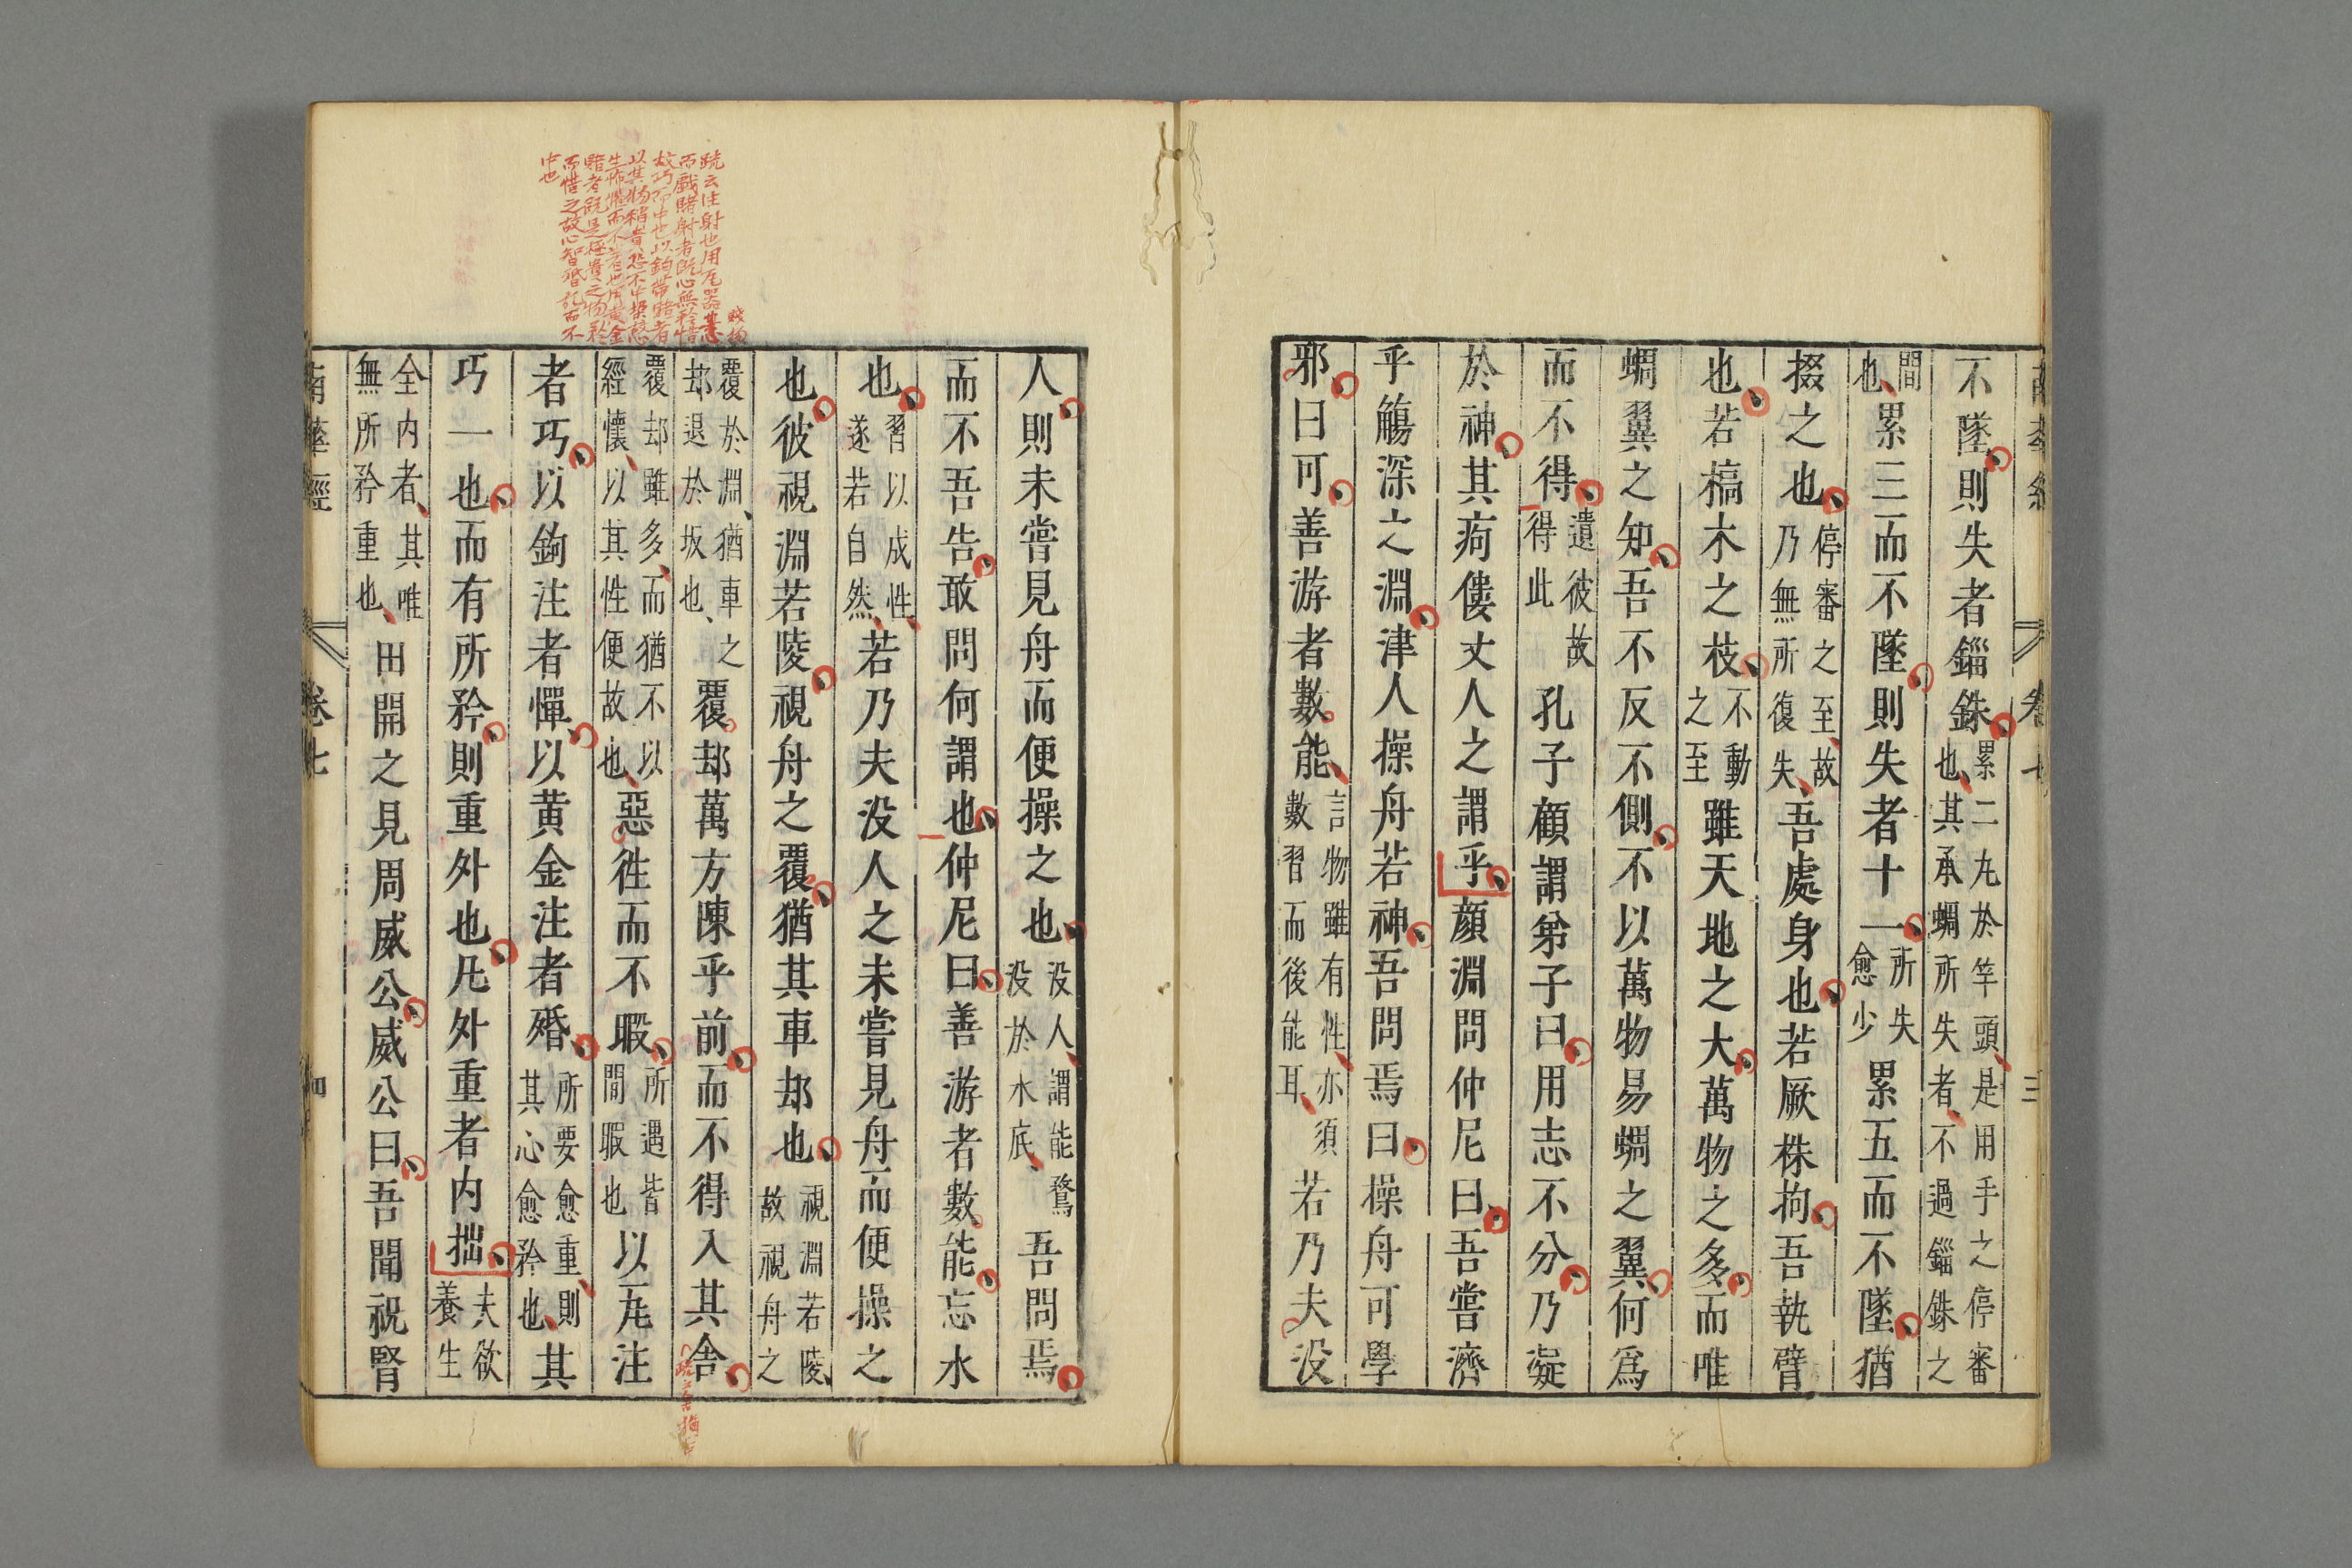 不墜則失者錙銖累二丸於竿頭是用手之停審也其承蜩所失者不過錙銖之
間也累三而不墜則失者十一所失愈少累五而不墜猶
掇之也停審之至故乃無所復失吾處身也若厥株拘吾執臂
也若槁木之枝不動之至雖天地之大萬物之多而唯
蜩翼之知吾不反不側不以萬物易蜩之翼何爲
而不得遺彼故得此孔子顧謂弟子曰用志不分乃凝
於神其痀僂丈人之謂乎顏淵問仲尼曰吾嘗濟
乎觴深之淵津人操舟若神吾問焉曰操舟可學
邪曰可善游者數能言物雖有性亦須數習而後能耳若乃夫没
人則未嘗見舟而便操之也没人謂能鶩没於水底吾問焉
而不吾告敢問何謂也仲尼曰善游者數能忘水
也習以成性遂若自然若乃夫没人之未嘗見舟而便操之
也彼視淵若陵視舟之覆猶其車却也視淵若陵故視舟之
覆於淵猶車之却退於坂也覆却萬方陳乎前而不得入其舍
覆却雖多而猶不以經懷以其性便故也惡徃而不暇所遇皆閒暇也以瓦注
者巧以鉤注者憚以黄金注者殙所要愈重則其心愈矜也其
巧一也而有所矜則重外也凡外重者内拙夫欲養生
全内者其唯無所矜重也田開之見周威公威公曰吾聞祝腎
南華經
卷七
疏云注射也用瓦器賤物
而戲賭射者既心無矜惜
故巧而中也以鉤帶賭者
以其物稍貴恐不中垛故
生怖懼而不著也用黄金
賭者既是極貴之物矜
而惜之故心智昏乱而不
中也